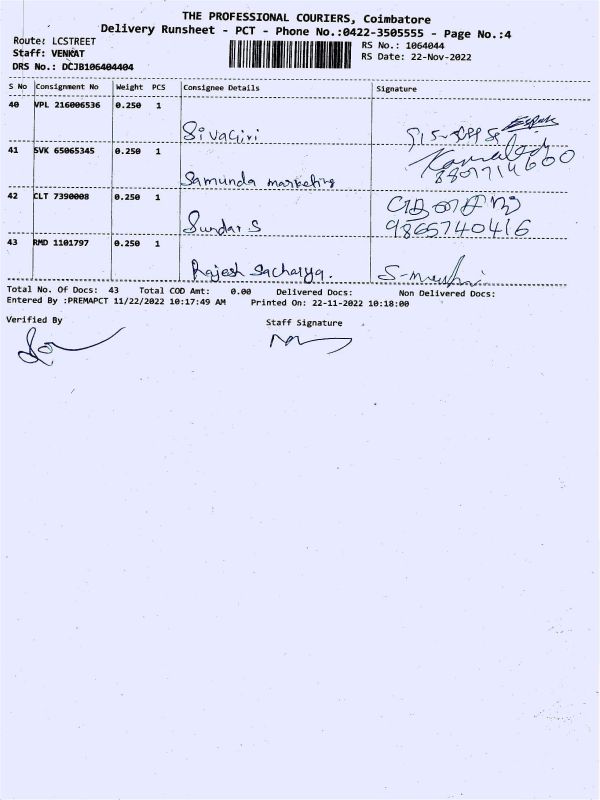 THE PROFESSIONAL COURIERS, Coimbatore
Delivery Runsheet - PCT - Phone No.:0422-3505555 - Page No.:4
Route: LCSTREET
Staff: VENKAT
DRS No.: DCJB106404404
RS No.: 1064044
RS Date: 22-Nov-2022
S No Consignment No Weight PCS Consignee Details Signature
40 VPL 216006536 0.250 1
Sivagiri
41 SVK 65065345 0.250 1
Samunda marketing
42 CLT 7390008 0.250 1
Sundar S 9865740416
43 RMD 1101797 0.250 1
Rajesh Sacharya.
Total No. Of Docs: 43 Total COD Amt: 0.00 Delivered Docs: Non Delivered Docs:
Entered By :PREMAPCT 11/22/2022 10:17:49 AM Printed On: 22-11-2022 10:18:00
Verified By
Staff Signature